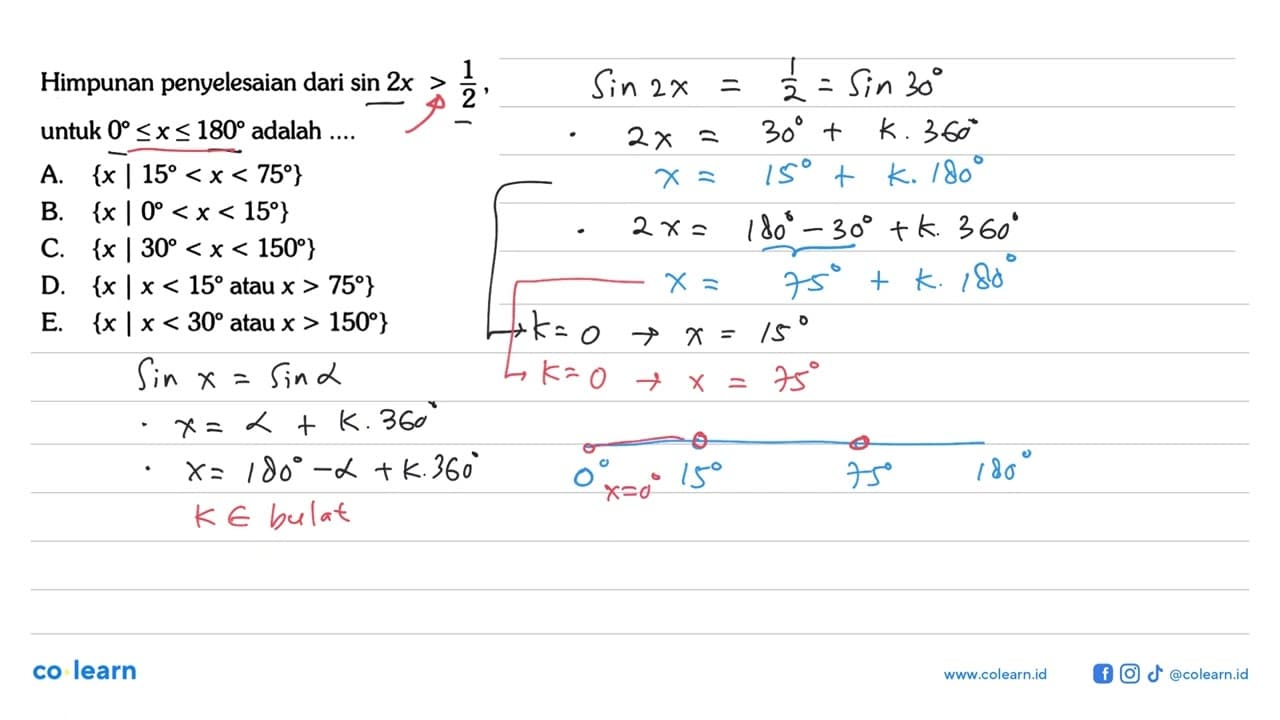 Himpunan penyelesaian dari sin 2x > 1/2,
untuk 0° ≤ x ≤ 180° adalah ....
A. {x | 15° < x < 75°}
B. {x | 0° < x < 15°}
C. {x | 30° < x < 150°}
D. {x | x < 15° atau x > 75°}
E. {x | x < 30° atau x > 150°}
Sin x = Sin α
· x = α + k. 360°
· x = 180° - α + k. 360°
K ∈ bulat
Sin 2x = 1/2 = Sin 30°
· 2x = 30° + k. 360°
x = 15° + k. 180°
· 2x = 180° - 30° + k. 360°
x = 75° + k. 180°
k = 0 → x = 15°
k = 0 → x = 75°
0° 15° 75° 180°
x = 0°
co learn
www.colearn.id @colearn.id